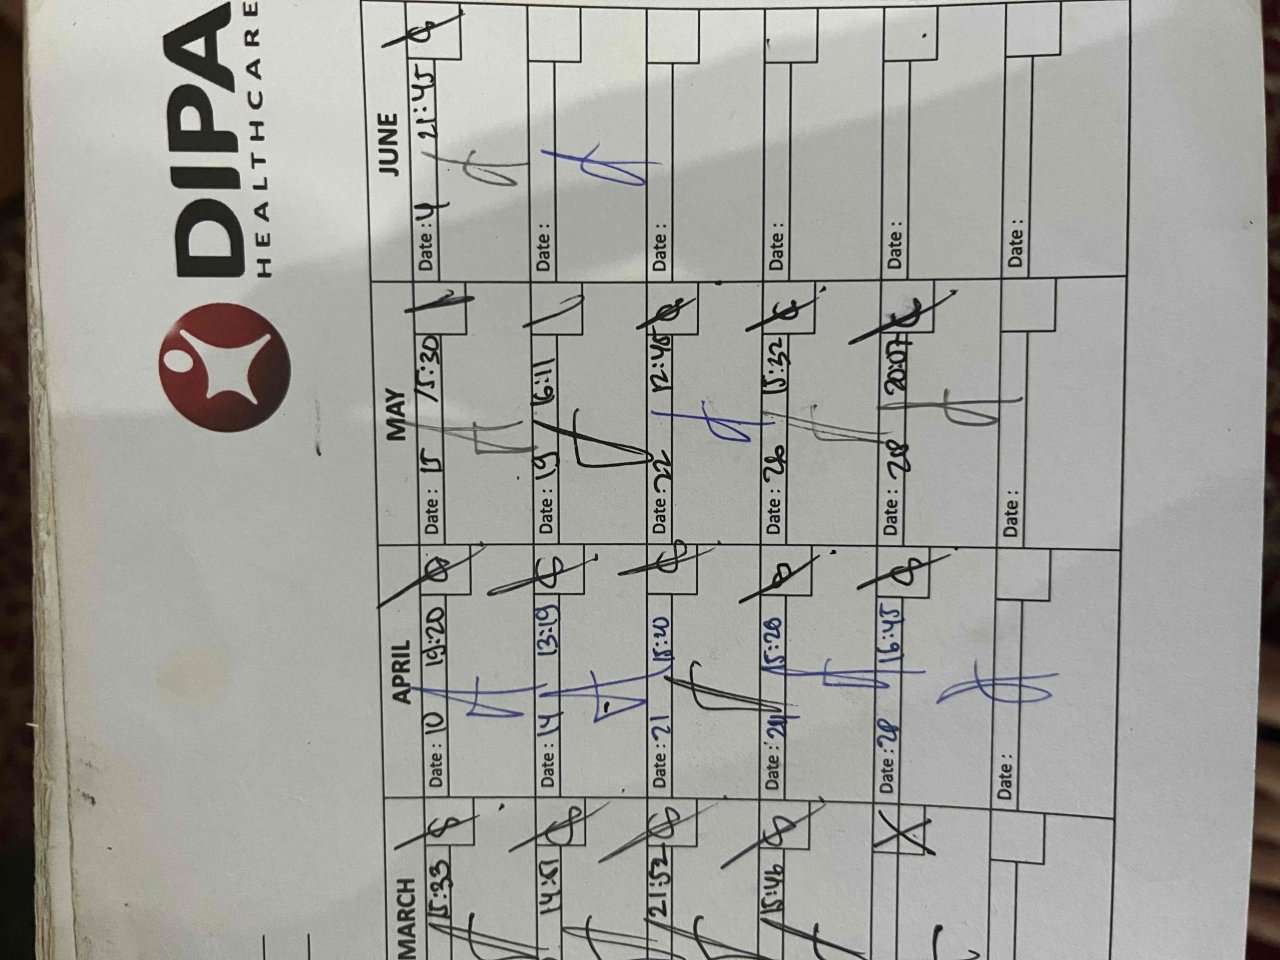 DIPA
HEALTHCARE
MARCH APRIL MAY JUNE
15:33 Date: 10 19:20 Date: 15 15:30 Date: 4 21:45
Date: 14 13:19 Date: 19 16:11 Date:
21:52 Date: 21 15:20 Date: 22 Date:
15:46 Date: 24 Date: 26 15:32 Date:
Date: 28 16:45 Date: 28 20:07 Date:
Date: Date: Date: